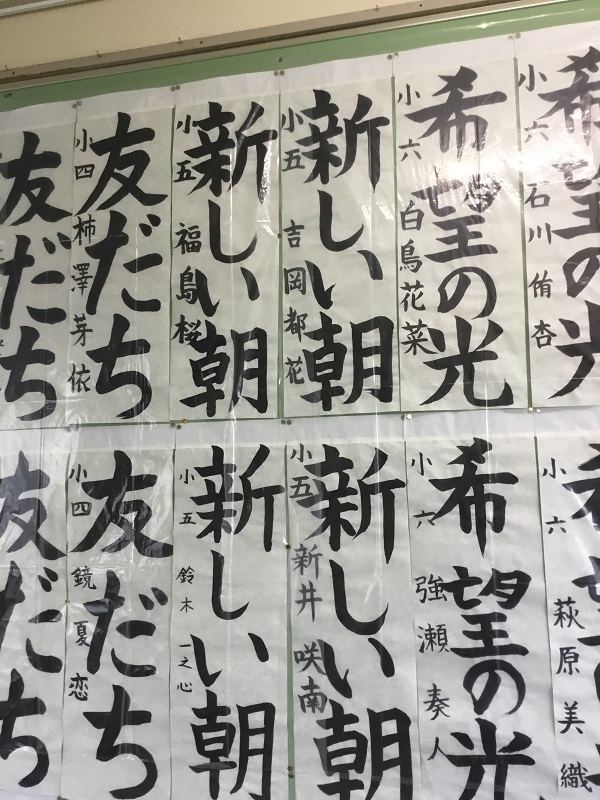 希望の光
小六 石川侑杏
希望の光
小六 白鳥花菜
新しい朝
小五 吉岡都花
新しい朝
小五 福島桜
友だち
小四 柿澤芽依
友だち
小六 萩原美織
希望の光
小六 強瀬奏人
新しい朝
小五 新井咲南
新しい朝
小五 鈴木一之心
友だち
小四 鏡夏恋
友だち